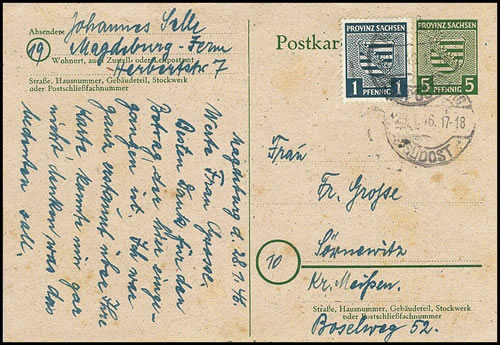 Absender: Johannes Selle
19 Magdeburg-Ferm
Herbertstr 7
Wohnort, auch Zustell- oder Leitpostamt
Straße, Hausnummer, Gebäudeteil, Stockwerk
oder Postschließfachnummer
Magdeburg d. 28.1.46.
Werte Frau Grosse.
Besten Dank für den
Betrag, der hier einge-
gangen ist. Ich war
ganz erstaunt über Ihre
Karte konnte mir gar
nicht denken was das
bedeuten soll.
Postkar
PROVINZ SACHSEN
1 PFENNIG 1
PROVINZ SACHSEN
5 PFENNIG 5
46.17-18
SÜDOST
Frau
Fr. Grosse
10 Sörnewitz
Kr. Meißen.
Straße, Hausnummer, Gebäudeteil, Stockwerk
oder Postschließfachnummer
Boselweg 52.